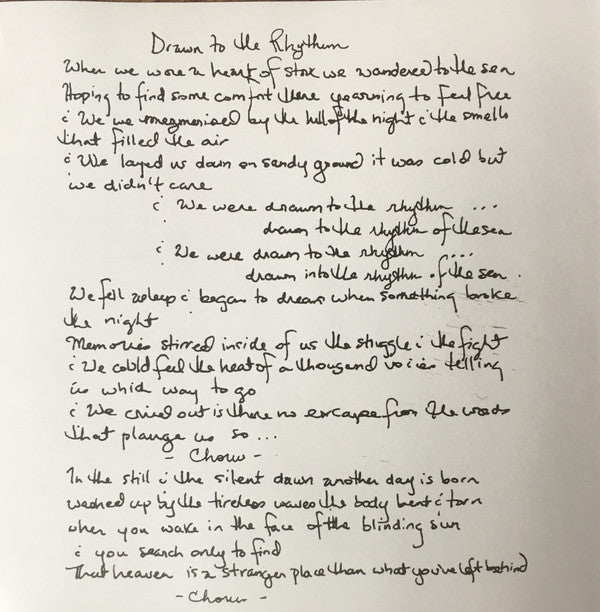 Drawn to the Rhythm
When we wore a heart of stone we wandered to the sea
Hoping to find some comfort there yearning to feel free
& We we mezmerised by the lull of the night & the smells
that filled the air
& We layed us down on sandy ground it was cold but
we didn't care
& We were drawn to the rhythm ...
drawn to the rhythm of the sea
& We were drawn to the rhythm ....
drawn into the rhythm of the sea .
We fell asleep & began to dream when something broke
the night
Memories stirred inside of us the struggle & the fight
& We could feel the heat of a thousand voices telling
us which way to go
& We cried out is there no escape from the words
that plauge us so ...
- Chorus -
In the still & the silent dawn another day is born
washed up by the tireless waves the body bent & torn
when you wake in the face of the blinding sun
& you search only to find
That heaven is a stranger place than what you've left behind
- Chorus -